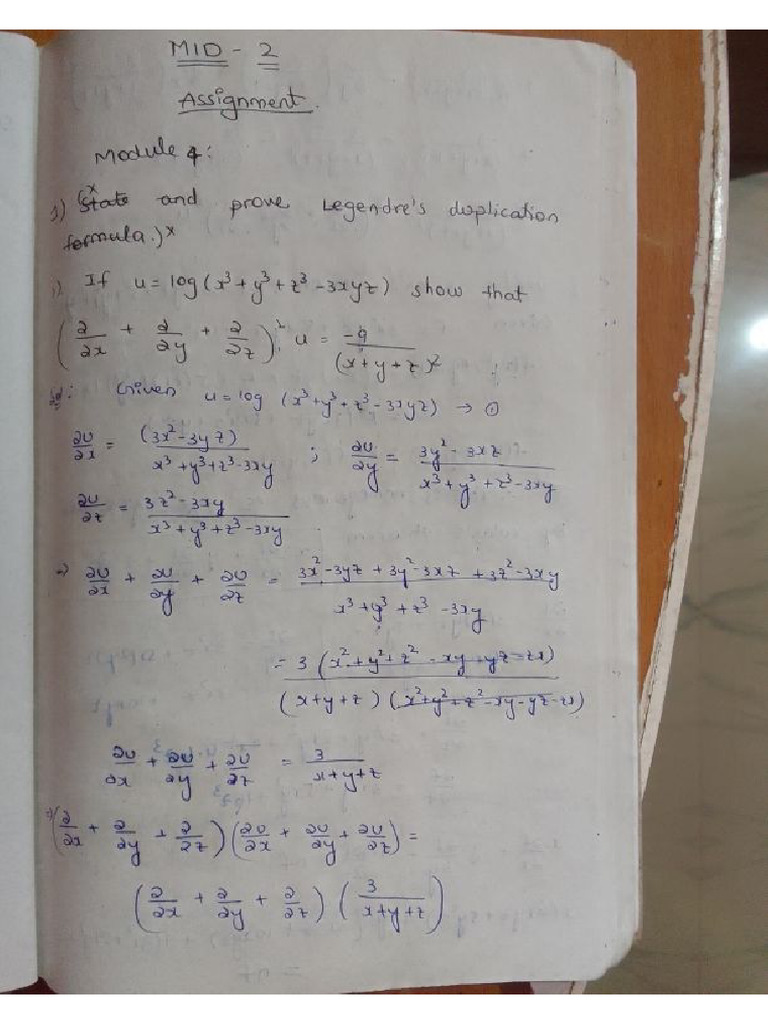 MID - 2
Assignment.
Module 4:
1) (*State and prove Legendre's duplication
formula.)*
1) If u = log (x³ + y³ + z³ - 3xyz) show that
(∂/∂x + ∂/∂y + ∂/∂z)² u = -9/(x+y+z)² ;
Sol: Given u = log (x³ + y³ + z³ - 3xyz) → ①
∂u/∂x = (3x² - 3yz)/(x³ + y³ + z³ - 3xy) ; ∂u/∂y = (3y² - 3xz)/(x³ + y³ + z³ - 3xy)
∂u/∂z = (3z² - 3xy)/(x³ + y³ + z³ - 3xy)
⇒ ∂u/∂x + ∂u/∂y + ∂u/∂z = (3x² - 3yz + 3y² - 3xz + 3z² - 3xy)/(x³ + y³ + z³ - 3xy)
= 3 (x² + y² + z² - xy - yz - zx)/((x+y+z) (x² + y² + z² - xy - yz - zx))
∂u/∂x + ∂u/∂y + ∂u/∂z = 3/(x+y+z)
⇒ (∂/∂x + ∂/∂y + ∂/∂z) (∂u/∂x + ∂u/∂y + ∂u/∂z) =
(∂/∂x + ∂/∂y + ∂/∂z) (3/(x+y+z))